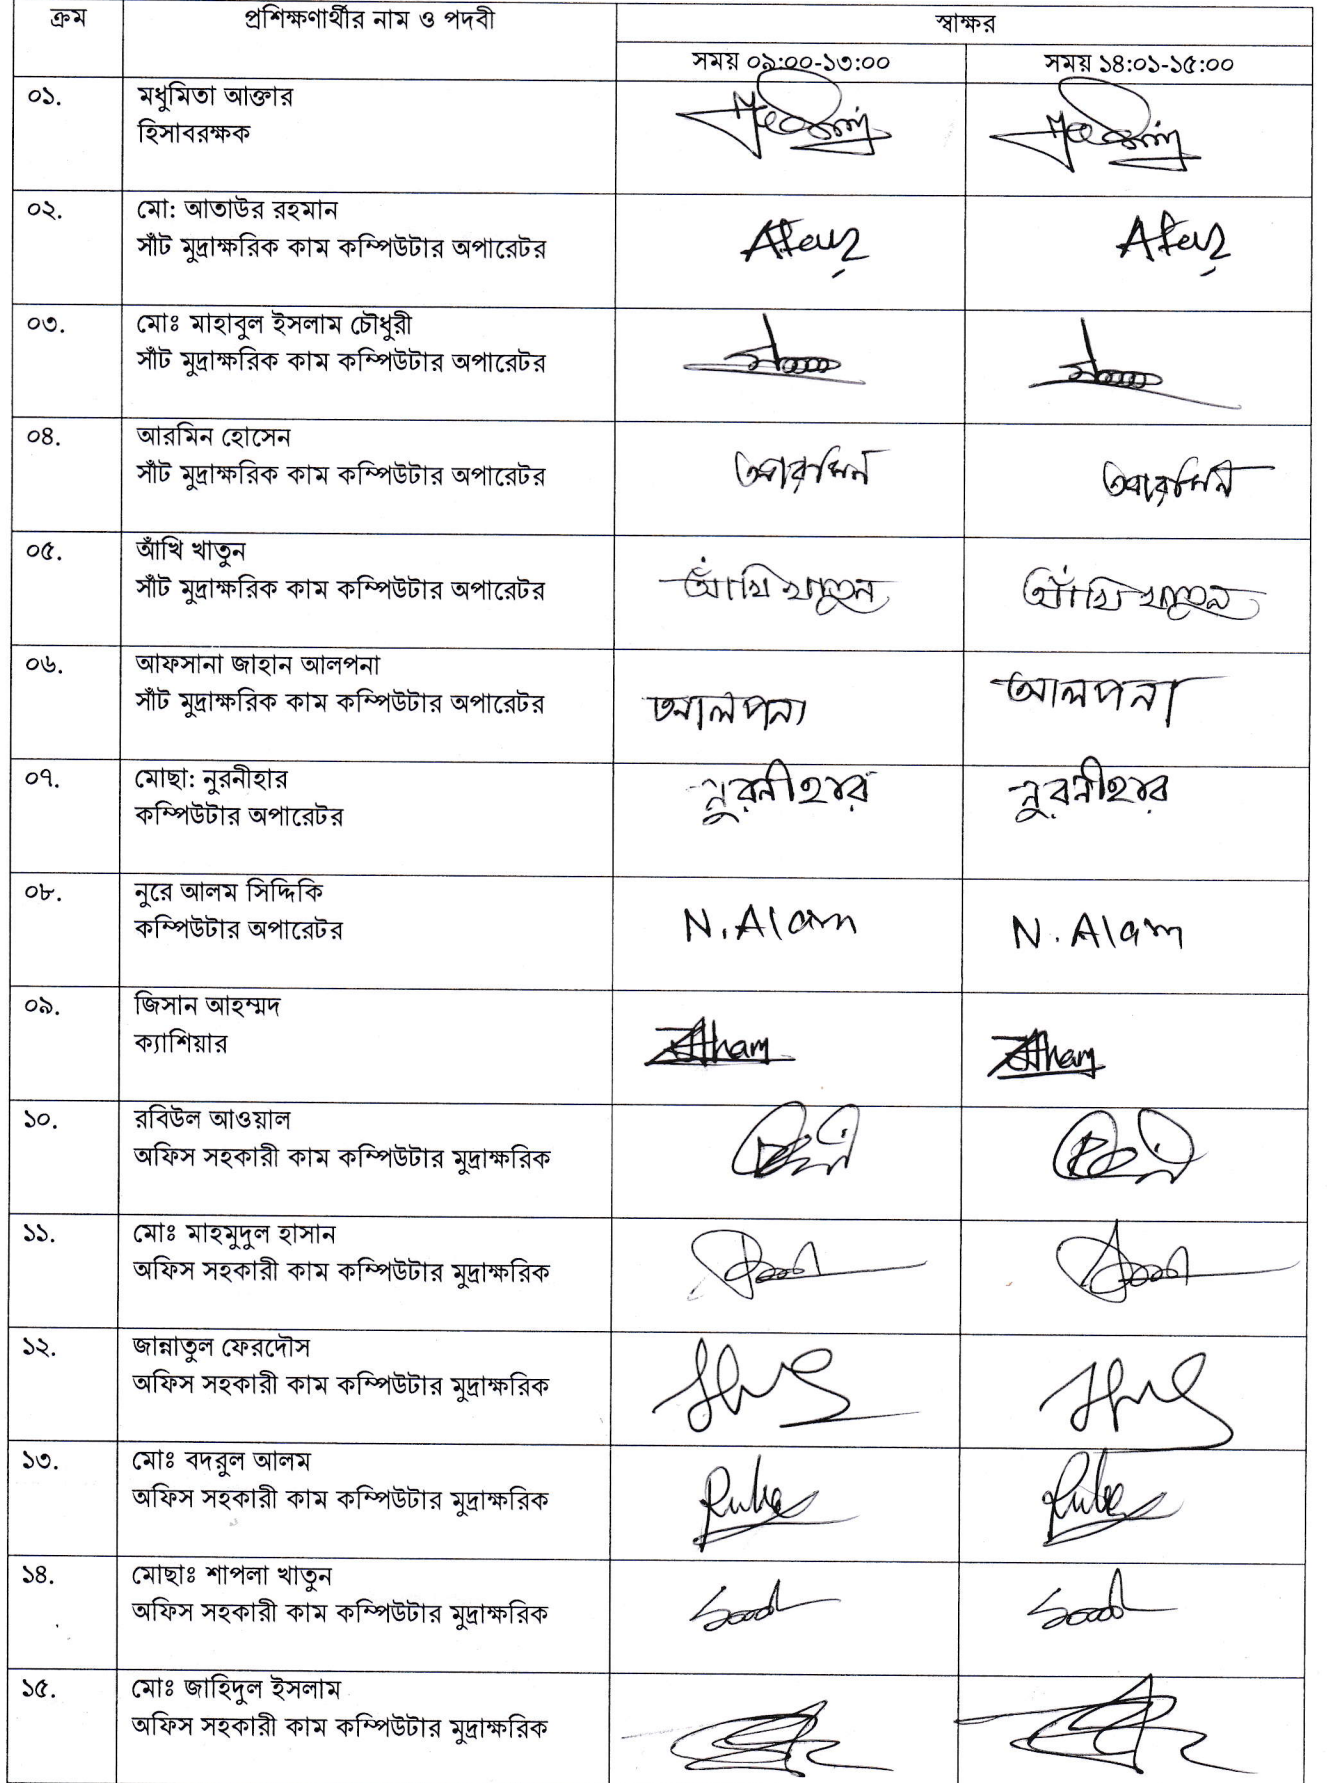 ক্রম প্রশিক্ষণার্থীর নাম ও পদবী স্বাক্ষর
সময় ০৯:০০-১৩:০০ সময় ১৪:০১-১৫:০০
০১. মধুমিতা আক্তার
হিসাবরক্ষক
০২. মো: আতাউর রহমান
সাঁট মুদ্রাক্ষরিক কাম কম্পিউটার অপারেটর
০৩. মোঃ মাহাবুল ইসলাম চৌধুরী
সাঁট মুদ্রাক্ষরিক কাম কম্পিউটার অপারেটর
০৪. আরমিন হোসেন
সাঁট মুদ্রাক্ষরিক কাম কম্পিউটার অপারেটর
আরমিন আরমিন
০৫. আঁখি খাতুন
সাঁট মুদ্রাক্ষরিক কাম কম্পিউটার অপারেটর
আঁখি খাতুন আঁখি খাতুন
০৬. আফসানা জাহান আলপনা
সাঁট মুদ্রাক্ষরিক কাম কম্পিউটার অপারেটর
আলপনা আলপনা
০৭. মোছা: নুরনীহার নুরনীহার নুরনীহার
কম্পিউটার অপারেটর
০৮. নুরে আলম সিদ্দিকি
কম্পিউটার অপারেটর N. Alam N. Alam
০৯. জিসান আহম্মদ
ক্যাশিয়ার
১০. রবিউল আওয়াল
অফিস সহকারী কাম কম্পিউটার মুদ্রাক্ষরিক
১১. মোঃ মাহমুদুল হাসান
অফিস সহকারী কাম কম্পিউটার মুদ্রাক্ষরিক
১২. জান্নাতুল ফেরদৌস
অফিস সহকারী কাম কম্পিউটার মুদ্রাক্ষরিক
১৩. মোঃ বদরুল আলম
অফিস সহকারী কাম কম্পিউটার মুদ্রাক্ষরিক
১৪. মোছাঃ শাপলা খাতুন
অফিস সহকারী কাম কম্পিউটার মুদ্রাক্ষরিক
১৫. মোঃ জাহিদুল ইসলাম
অফিস সহকারী কাম কম্পিউটার মুদ্রাক্ষরিক